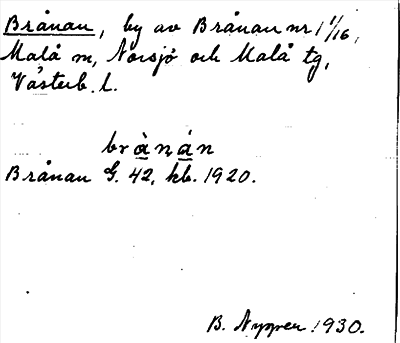 Brånan, by av Brånan nr 1 1/16,
Malå sn, Norsjö och Malå tg,
Västerb. l.
brànán
Brånan G. 42, kb. 1920.
B. Nygren 1930.